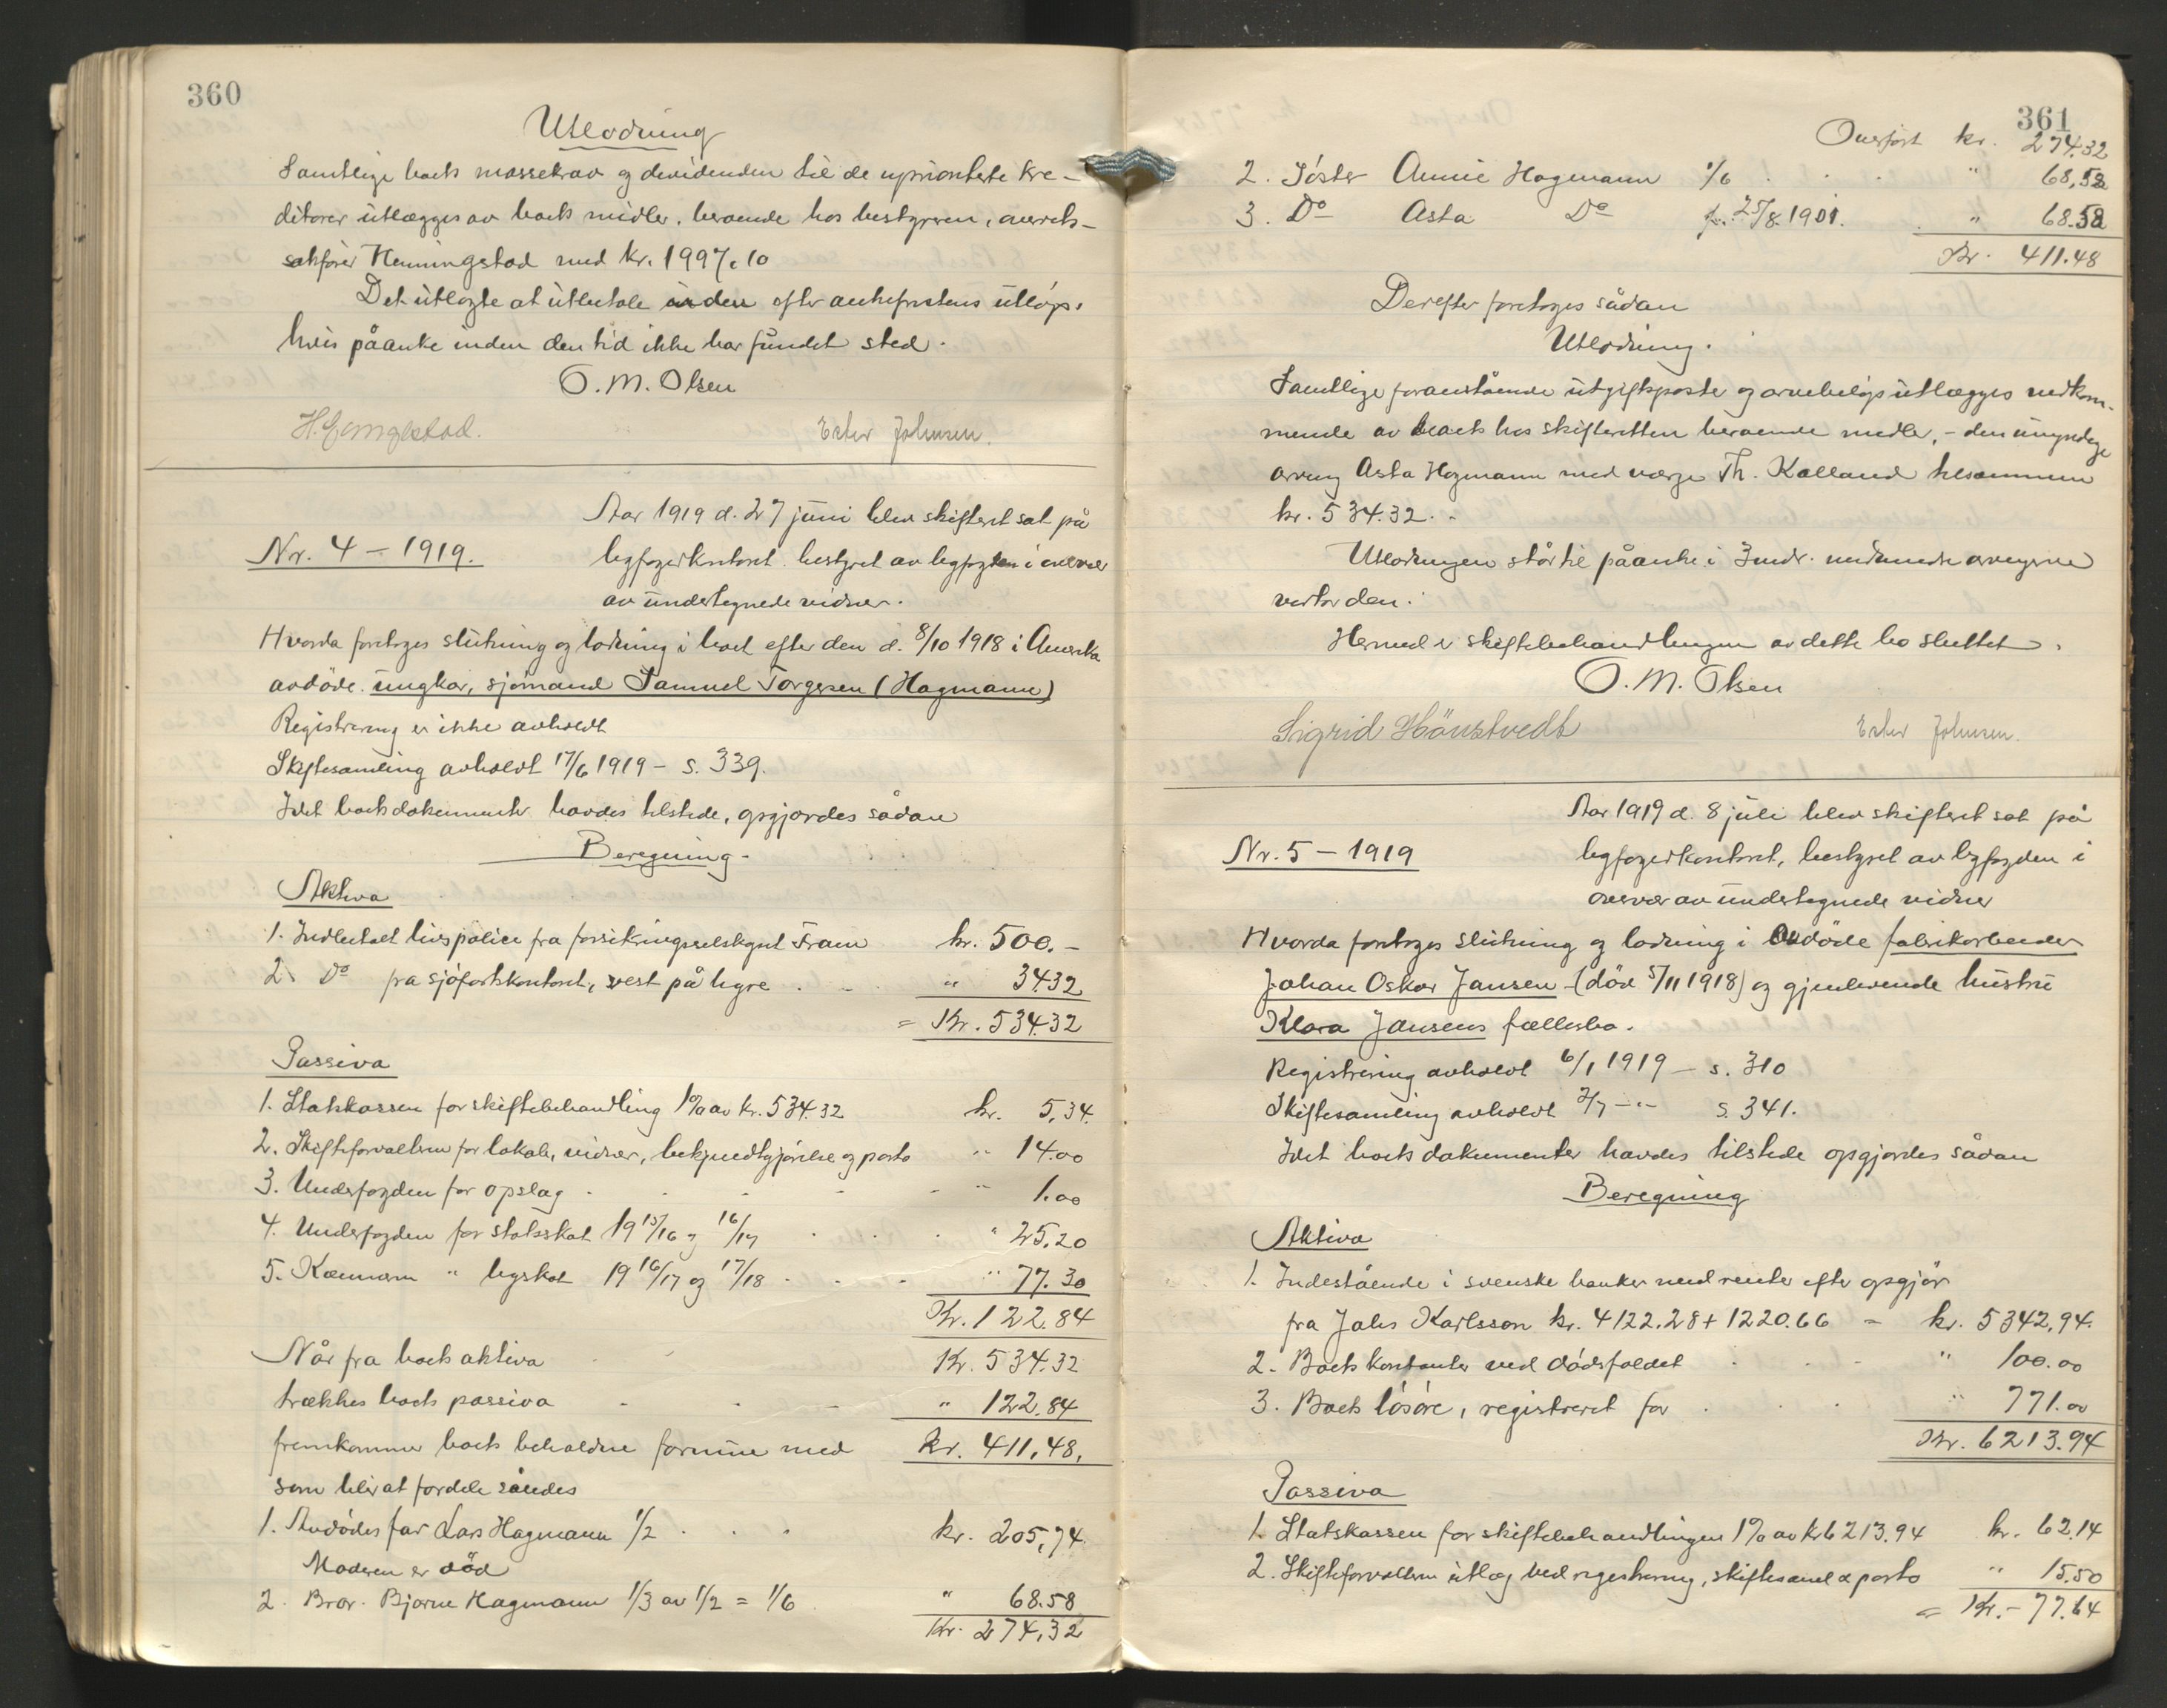 360
Utlodning
Samtlige boets massekrav og dividenden til de upriorterte kre-
ditorer utlægges av boets midler, beroende hos bestyreren, overrets-
sakfører Henningstad med kr. 1997.10
Det utlagte at utbetale inden efter ankefristens utløp,
hvis påanke inden den tid ikke har fundet sted.
O. M. Olsen
Ester Johnsen.
Aar 1919 d. 27 juni blev skifteret sat på
Nr. 4 – 1919.
byfogedkontoret bestyret av byfogden i overvær
av undertegnede vidner.
Hvorda foretoges slutning og lodning i boet efter den d. 8/10 1918 i Amerika
avdöde ungkar, sjömand Samuel Torgersen (Hagmann)
Registrering er ikke avholdt
Skiftesamling avholdt 17/6 1919 – s. 339.
Idet boets dokumenter havdes tilstede, opgjordes sådan
Beregning.
Aktiva
1. Indbetalt livspolice fra forsikringsselskapet Fram kr. 500.-
2. Do fra sjöfartskontoret, rest på hyre " 34.32
= Kr. 534.32
Passiva
1. Statskassen for skiftebehandling 1% av kr. 534.32 kr. 5,34.
2. Skifteforvalteren for lokale, vidner, bekjendtgjörelse og porto " 14.00
3. Underfogden for opslag " 1.00
4. Underfogden for statsskat 19 15/16 og 16/17 " 25,20
5. Kæmneren " byskat 19 16/17 og 17/18 " 77.30
Kr. 122.84
Når fra boets aktiva Kr. 534.32
trækkes boets passiva " 122.84
fremkommer boets beholdne formue med Kr. 411,48.
som blir at fordele således
1. Avdödes far Lars Hagmann 1/2 kr. 205,74.
Moderen er död
2. Bror Bjarne Hagmann 1/3 av 1/2 = 1/6 " 68.58
Kr. 274,32
361
Overfört kr. 274.32
2. Söster Annie Hagmann 1/6 " 68,58
3. Do Asta Do f. 25/8 1901. " 68.58
Kr. 411.48
Derefter foretoges sådan
Utlodning.
Samtlige foranstående utgiftsposte og arvebelöp utlægges vedkom-
mende av boets hos skifteretten beroende midler, - den umyndige
arving Asta Hagmann med værge Th. Kalland tilsammen
kr. 534.32.
Utlodningen står til påanke i 3 mdr. medmindre arvingerne
vedtar den.
Hermed er skiftebehandlingen av dette bo sluttet.
O. M. Olsen
Sigrid Hönstvedt Ester Johnsen.
Aar 1919 d. 8 juli blev skifteret sat på
Nr. 5 – 1919
byfogedkontoret, bestyret av byfogden i
overvær av undertegnede vidner
Hvorda foretoges slutning og lodning i avdöde fabrikarbeider
Johan Oskar Jansen (död 5/11 1918) og gjenlevende hustru
Klara Jansens fællesbo.
Registrering avholdt 6/1 1919 – s. 310
Skiftesamling avholdt 3/7 –"– s. 341.
Idet boets dokumenter havdes tilstede opgjordes sådan
Beregning
Aktiva
1. Indestående i svenske banker med renter efter opgjör
fra Johs Karlsson kr. 4122.28 + 1220.66 = kr. 5342,94.
2. Boets kontanter ved dödsfaldet " 100.00
3. Boets lösöre, registreret for " 771.00
Kr. 6213.94
Passiva
1. Statskassen for skiftebehandlingen 1% av kr 6213.94 kr. 62.14
2. Skifteforvalteren utlæg ved registrering, skiftesaml & porto " 15.50
= Kr. - 77.64